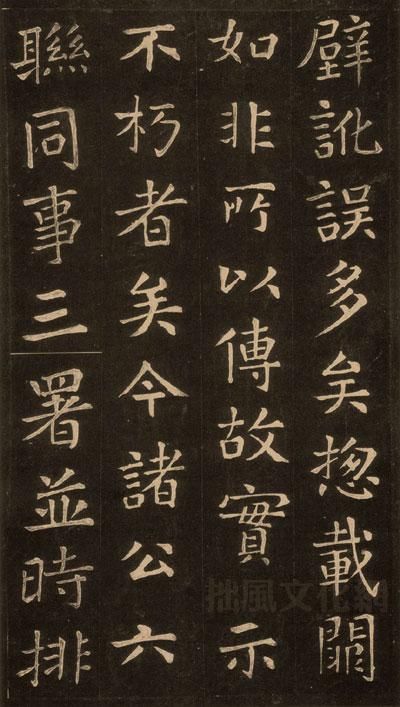 壁訛誤多矣惣載闕
如非所以傳故實示
不朽者矣今諸公六
聯同事三署並時排
拙風文化網